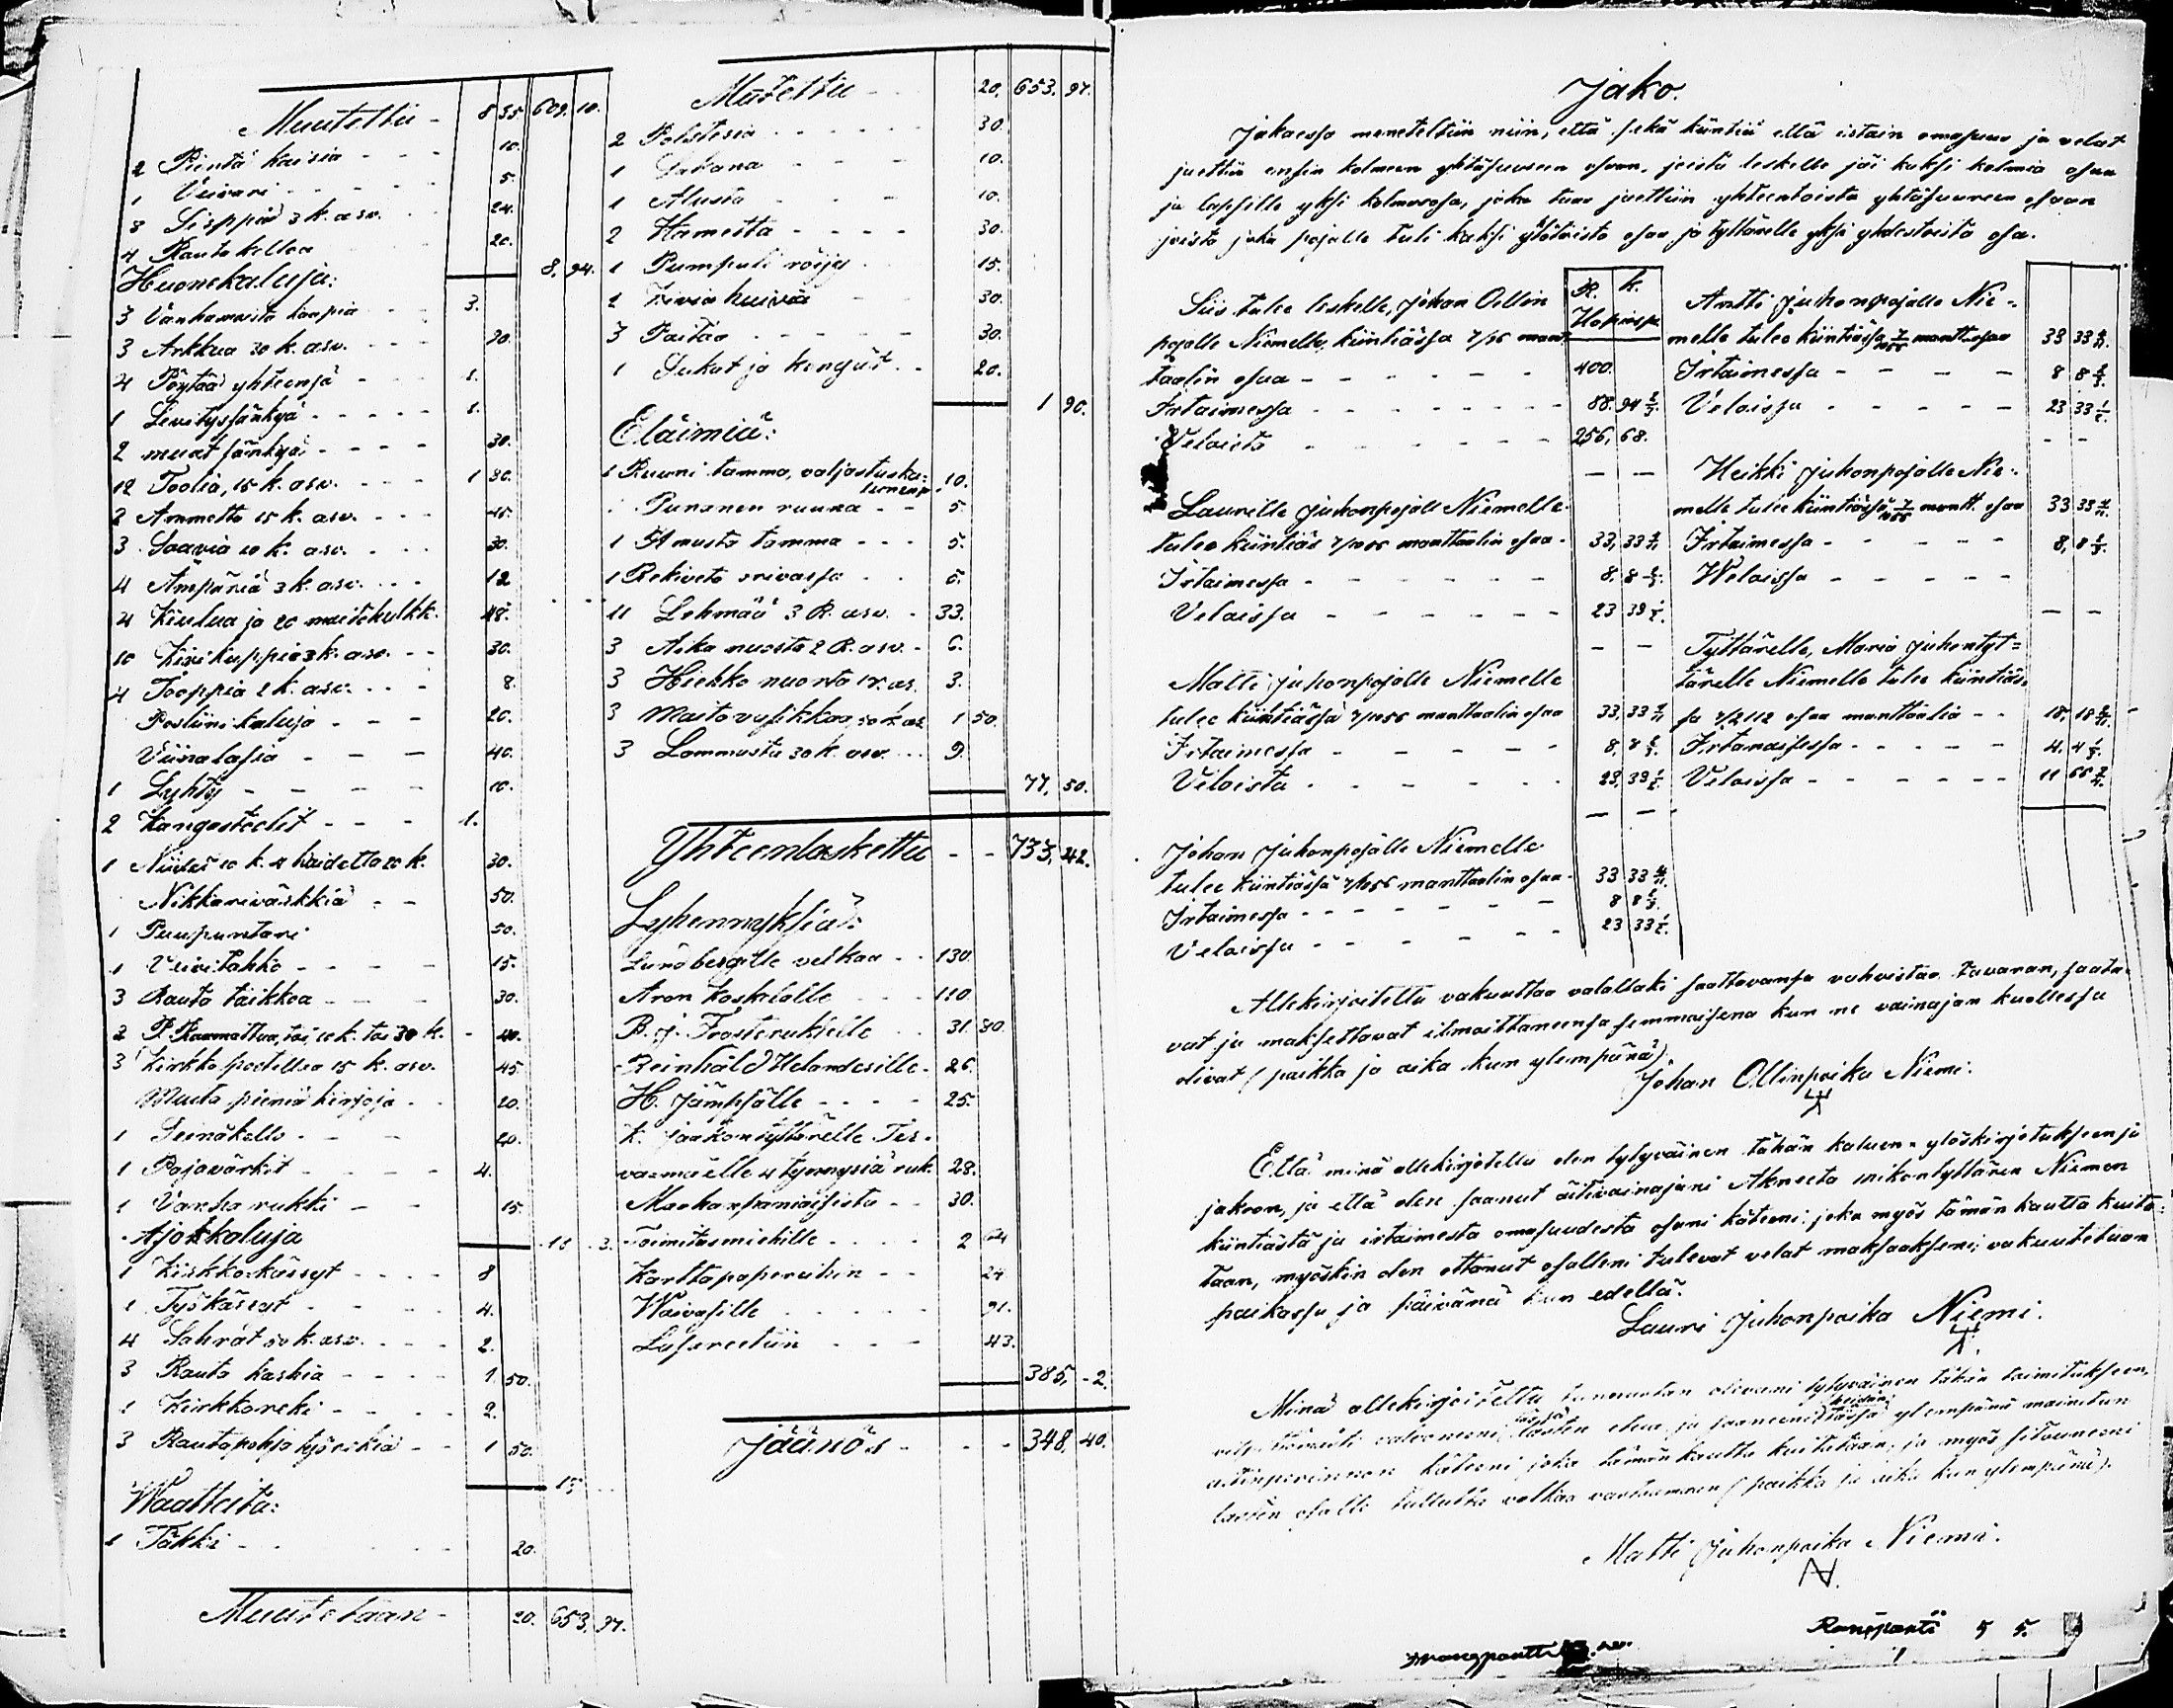 Muutettu - 8 35 609. 10.
2 Pientä kaisia - - - 10.
1 Viivari - - - - - 5.
8 Sirppiä 3 k. asv. - - 24.
4 Rauta kelloa 20.
8. 94.
Huonekaluja:
3 Vanhamaista kaapia - - 3.
3 Arkkua 30 k. asv. - - - 90.
4 Pöytää yhteensä - - - 1.
1 Levityssänkyä - - - - - 1.
2 muut sänkyä - - - - 30.
12 Toolia, 15 k. asv. - - - 1 80.
3 Ammetta 15 k. asv. - - - 45.
3 Saavia 10 k. asv. - - - 30.
4 Ämpäriä 3 k. asv. - - - 12
4 Kiulua ja 20 maitokulkk. 48.
10 Kivikuppia 3 k. asv. - - 30.
4 Tooppia 2 k. asv. - - - 8.
Posliini kaluja - - - 20.
Viinalasia - - - 40.
1 Lyhty - - - - 10.
2 Kangastoolit - - - 1.
1 Niidet 10 k. 4 kaidetta 20 k. 30.
Nikkarivärkkiä - - 50.
1 Puupuntari 50.
1 Veivitahko - - - - 15.
3 Rauta taikkoa - - - 30.
2 P. Raamattua, toi 10 k. toi 30 k. - 40.
3 Kirkko postillaa 15 k. asv. 45
Muita pieniä kirjoja - - 20.
1 Seinäkello - - - 20.
1 Pajavärkit - - - - 4.
1 Vanha rukki - - 15.
Ajokkaluja 18 3.
1 Kirkko kärryt - - - - 8
1 Työkärrat - - - - 4.
4 Sahrat 50 k. asv. - - - 2.
3 Rauta kaskia - - - - 1. 50.
1 Kirkkoreki - - - - 2.
3 Rautapohja työrekiä - - 1 50.
15
Waatteita:
1 Täkki - - - - 20.
Muutetaan - 20. 653. 97.
Mutettu - - - 20. 653. 97.
2 Polsteria - - - - - - 30.
1 Lakana - - - 10.
1 Alusta - - - 10.
2 Hametta - - - - 30.
1 Pumpuli röijy - - 15.
2 Kivia huivia - 30.
3 Paitaa - - - - - 30.
1 Sukat ja kengät - - 20.
1 90.
Eläimiä:
1 Ruuni tamma, valjastuska- 10.
Punanen ruuna - - 5.
1 St musta tamma - - - 5.
1 Rekiveto - - 5.
11 Lehmää 3 R. asv. - 33.
3 Aika nuorta 2 R. asv. - 6.
3 Hiehko nuorta 1 r. as. 3.
3 Maito vasikkaa 50 k. as. 1 50.
3 Lammasta 30 k. asv. - - - 9.
77. 50.
Yhteenlaskettu - - 733, 42.
Lyhennyksiä:
Lundbergille velkaa - - 130.
Aron Koskelalle - - - 110
B. J. Frosterukselle - - 31. 80.
Reinhäld Helanderille - 26.
H. Jämpsälle - - - - 25.
K. Jaakontyttärelle Ter-
vamäelle 4 tynnyriä ruk. 28.
Maahanpaniaisista - - 30.
Toimitusmiehille - - - - 2 64
Karttapaperiihin - - 24
Waivasille - - - - - 91.
Lasareetiin - - - 43.
385, - 2.
Jäänös - - - 348. 40.
Jako.
Jakaessa meneteltiin niin, että sekä kiintiä että irtain omasuus ja velat
jaettiin ensin kolmeen yhtäsuureen osaan, joista leskelle jäi kaksi kolmia osaa
ja lapsille yksi kolmasosa, joka taas jaettiin yhteentoista yhtäsuureen osaan
joista joka pojalle tuli kaksi yhtätoista osaa ja tyttärelle yksi yhdestoista osa.
R. k.
Hopiassa
Siis tulee leskelle, Johan Ollin
pojalle Niemelle, kiintiässä 7/96 mant-
taalin osaa - - - - - - 400.
Irtaimessa - - - - - - - - 88. 94 2/3.
Veloista - - - - - - - 256, 68.
Laurille Juhonpojalle Niemelle
tulee kiintiäs 7/1056 manttaalin osaa - 33, 33 4/11
Irtaimessa - - - - - - 8, 8 2/3.
Velaissa - - - - - - 23 33 1/2.
Matti Juhonpojalle Niemelle
tulee kiintiässä 7/1056 manttaalin osaa 33, 33 4/11
Irtaimessa - - - - - 8, 8 2/3.
Veloista - - - - - - 23, 33 1/2.
Johan Juhonpojalle Niemelle
tulee kiintiässä 7/1056 manttaalin osaa - 33 33 4/11.
Irtaimessa - - - - - - - 8 8 2/3.
Velaissa - - - - - - 23 33 1/2.
Antti Juhonpojalle Nie-
melle tulee kiintiässä 7/1056 mantt. osaa 33 33 4/11.
Irtaimessa - - - - 8 8 2/3.
Velaissa - - - - - 23 33 1/2
Heikki Juhonpojalle Nie-
melle tulee kiintiässä 7/1056 mantt. osaa 33 33 4/11.
Irtaimessa - - - - - 8, 8 2/3.
Welaissa - - - - -
Tyttärelle, Maria Juhontyt-
tärelle Niemelle tulee kiintiäs-
sä 7/2112 osaa manttaalia - - 16,
Irtanaisessa - - - - - 4. 4 1/3.
Velaissa - - - - - - 11 66
Allekirjoitettu vakuuttaa valallaki saattavansa vahvistaa tavaran, saata-
vat ja maksettavat ilmoittaneensa semmoisena kun ne vainajan kuollessa
olivat (paikka ja aika kun ylempänä).
Johan Ollinpoika Niemi.
Että minä allekirjotettu olen tytyväinen tähän kaluun- ylöskirjotukseen ja
jakoon, ja että olen saanut äitivainajani Akneeta Mikontyttären Niemen
kiintiästä ja irtaimesta omasuudesta osani käteeni, joka myös tämän kautta kuita-
taan, myöskin olen ottanut osalleni tulevat velat maksaakseni; vakuutetaan
paikassa ja päivänä kun edellä.
Lauri Juhonpoika Niemi.
Minä allekirjoitettu tunnustan olevani tytyväinen tähän toimitukseen,
lasten etua ja saaneeni heidän tässä ylempänä mainitun
äitinperinnön käteeni joka tämän kautta kuitataan; ja myös sitouneeni
lasten osalle tullutta velkaa vastaamaan (paikka ja aika kun ylempänä).
Matti Juhonpoika Niemi.